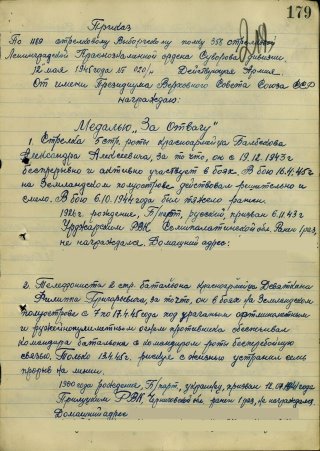 179
Приказ
По 1189 стрелковому Выборгскому полку 358 стрелковой
Ленинградской Краснознаменной ордена Суворова дивизии.
12 мая 1945 года № 020/н Действующая Армия.
От имени Президиума Верховного Совета Союза ССР
награждаю:
Медалью „За Отвагу"
1. Стрелка 5 стр. роты красноармейца
Александра Алексеевича, за то что, он с 19.12.1943г
беспрерывно и активно участвует в боях. В бою 16.4.45г
на Земландском полуострове действовал решительно и
смело. В бою 6.10.1944 года был тяжело ранен.
1926г. рождения, Б/парт, русский, призван 6.11.43г
Урджарским РВК, Семипалатинской обл. Ранен 1 раз,
не награждался. Домашний адрес:
2. Телефониста 2 стр. батальона красноармейца
Филиппа за то что, он в боях на Земландском
полуострове с 7 по 17.4.45 года под ураганным артминометным
и ружейнопулеметным огнем противника обеспечивал
командира батальона с командиром роты бесперебойную
связью. Только 13.4.45г. рискуя жизнью устранил семь
порыв на линии.
1900 года рождения, Б/парт, украинец, призван
Прилукским РВК Черниговской обл. ранен 1 раз, не награждался,
Домашний адрес